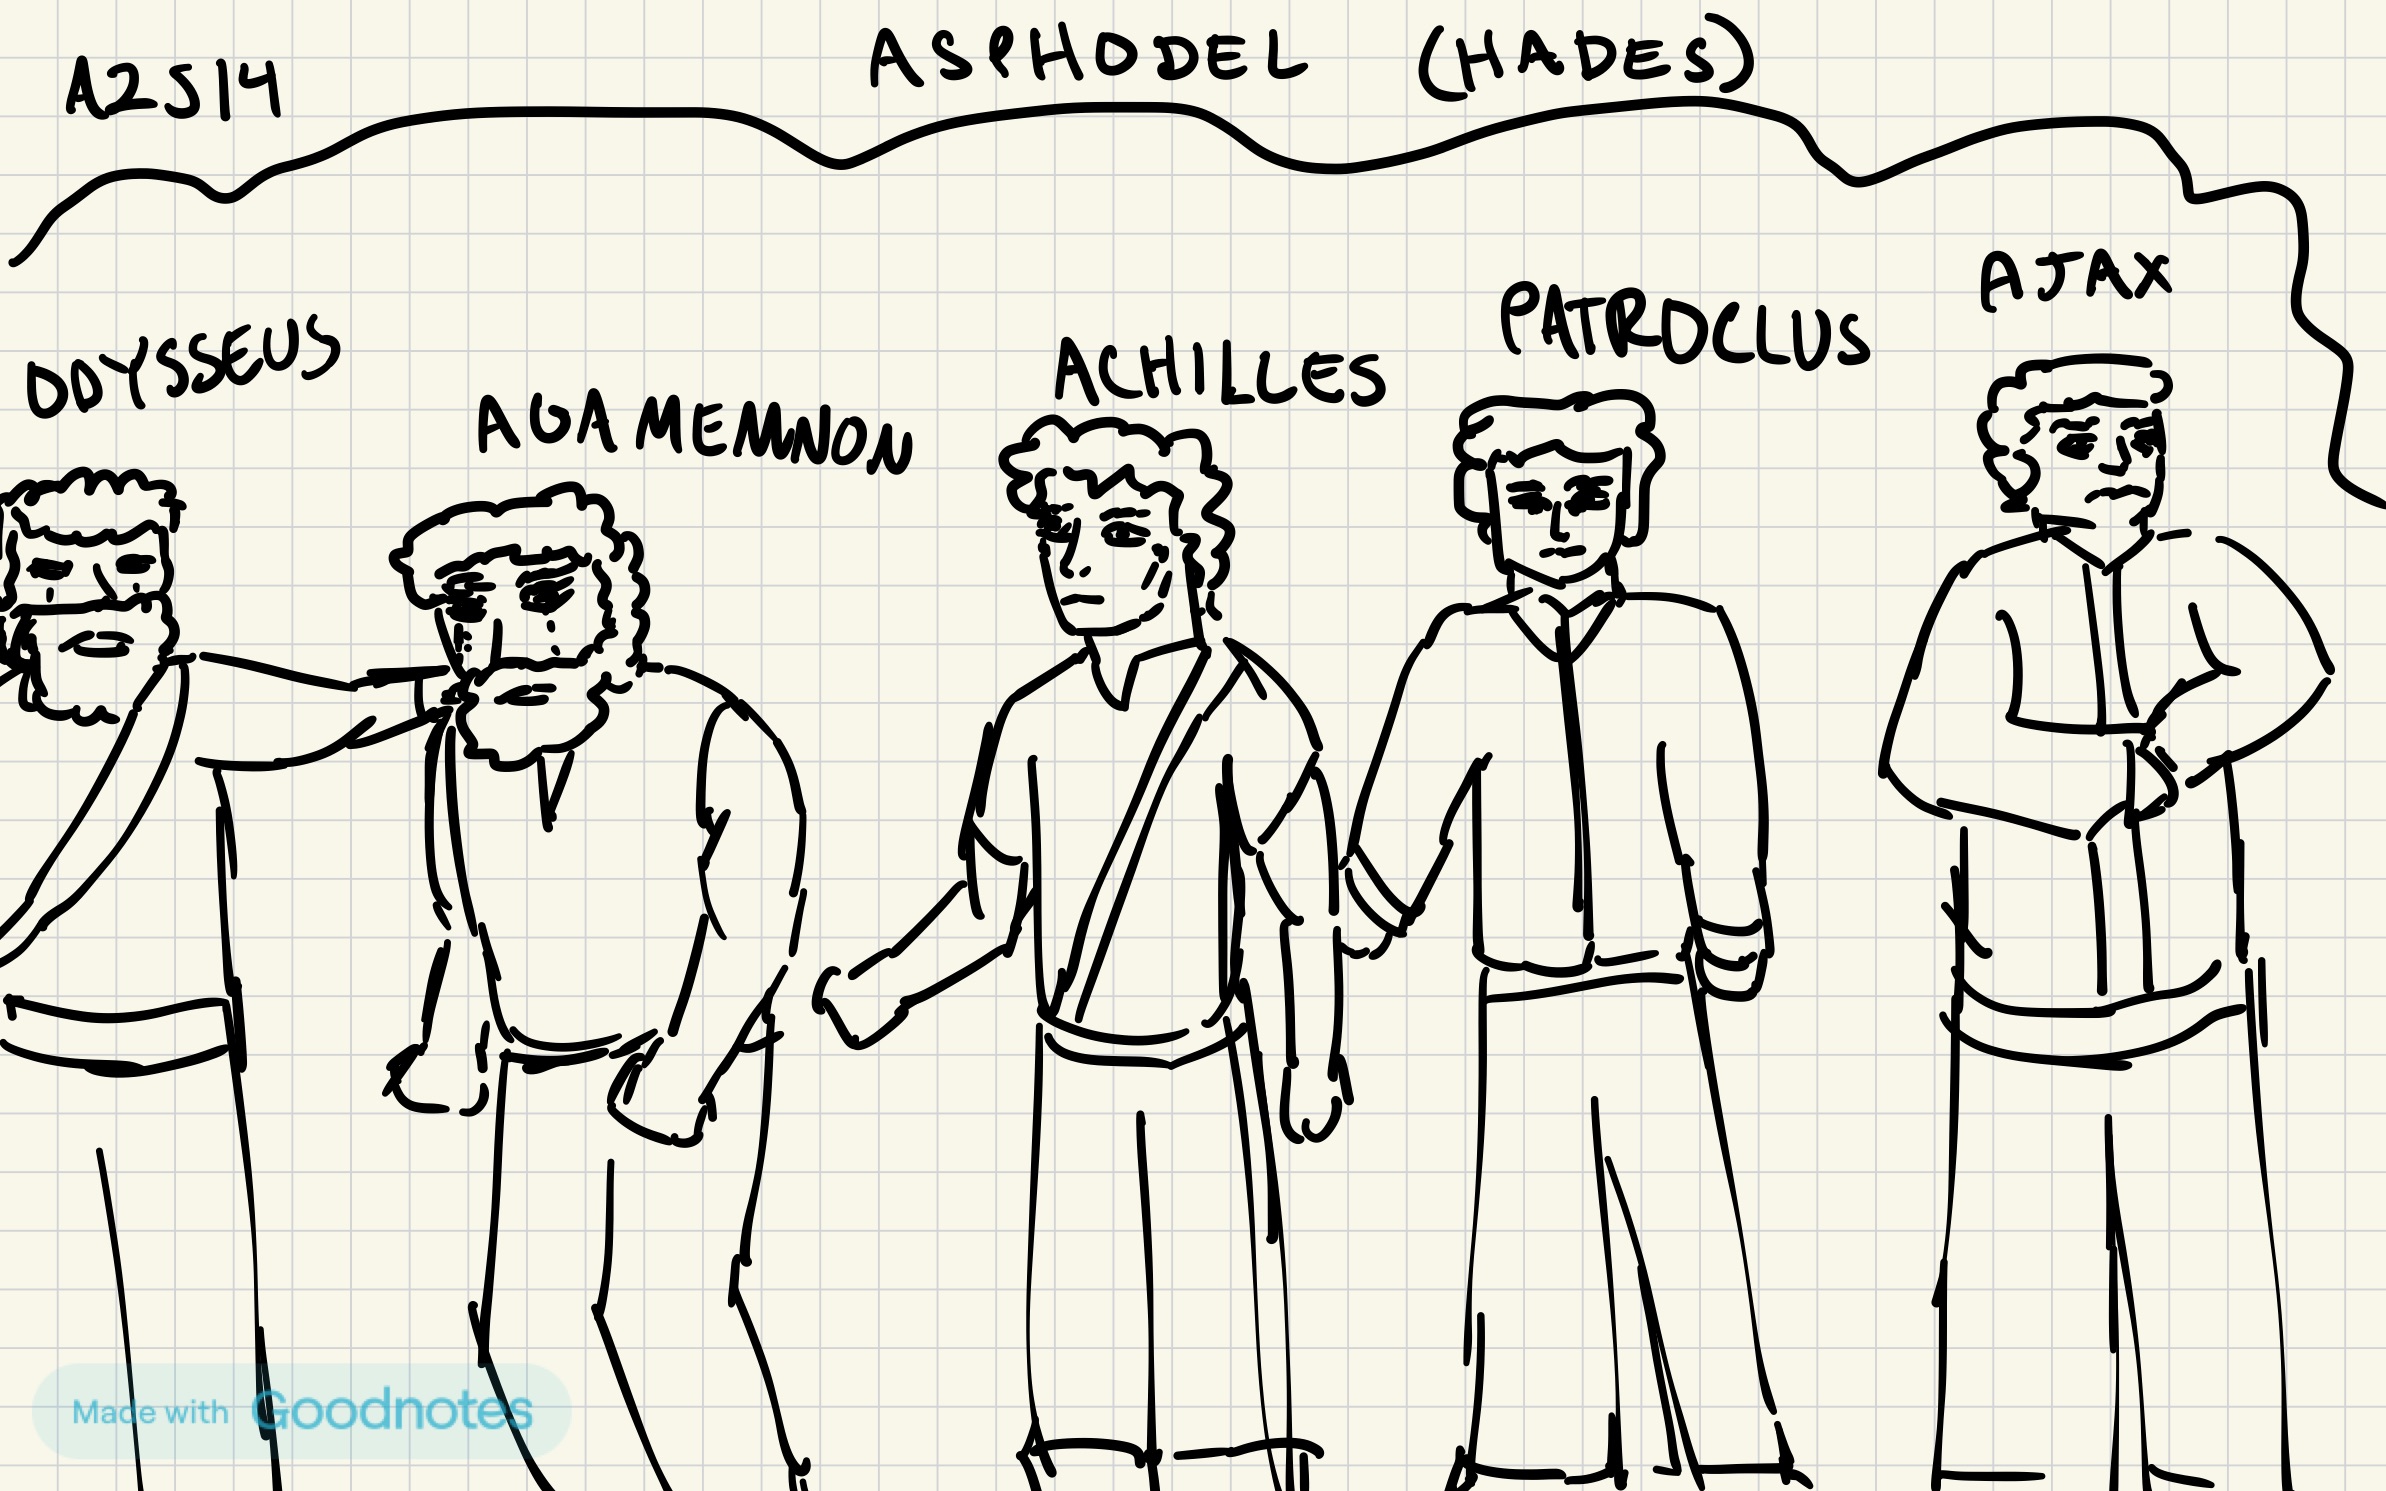 A2S14
ASPHODEL (HADES)
ODYSSEUS
AGAMEMNON
ACHILLES
PATROCLUS
AJAX
Made with Goodnotes